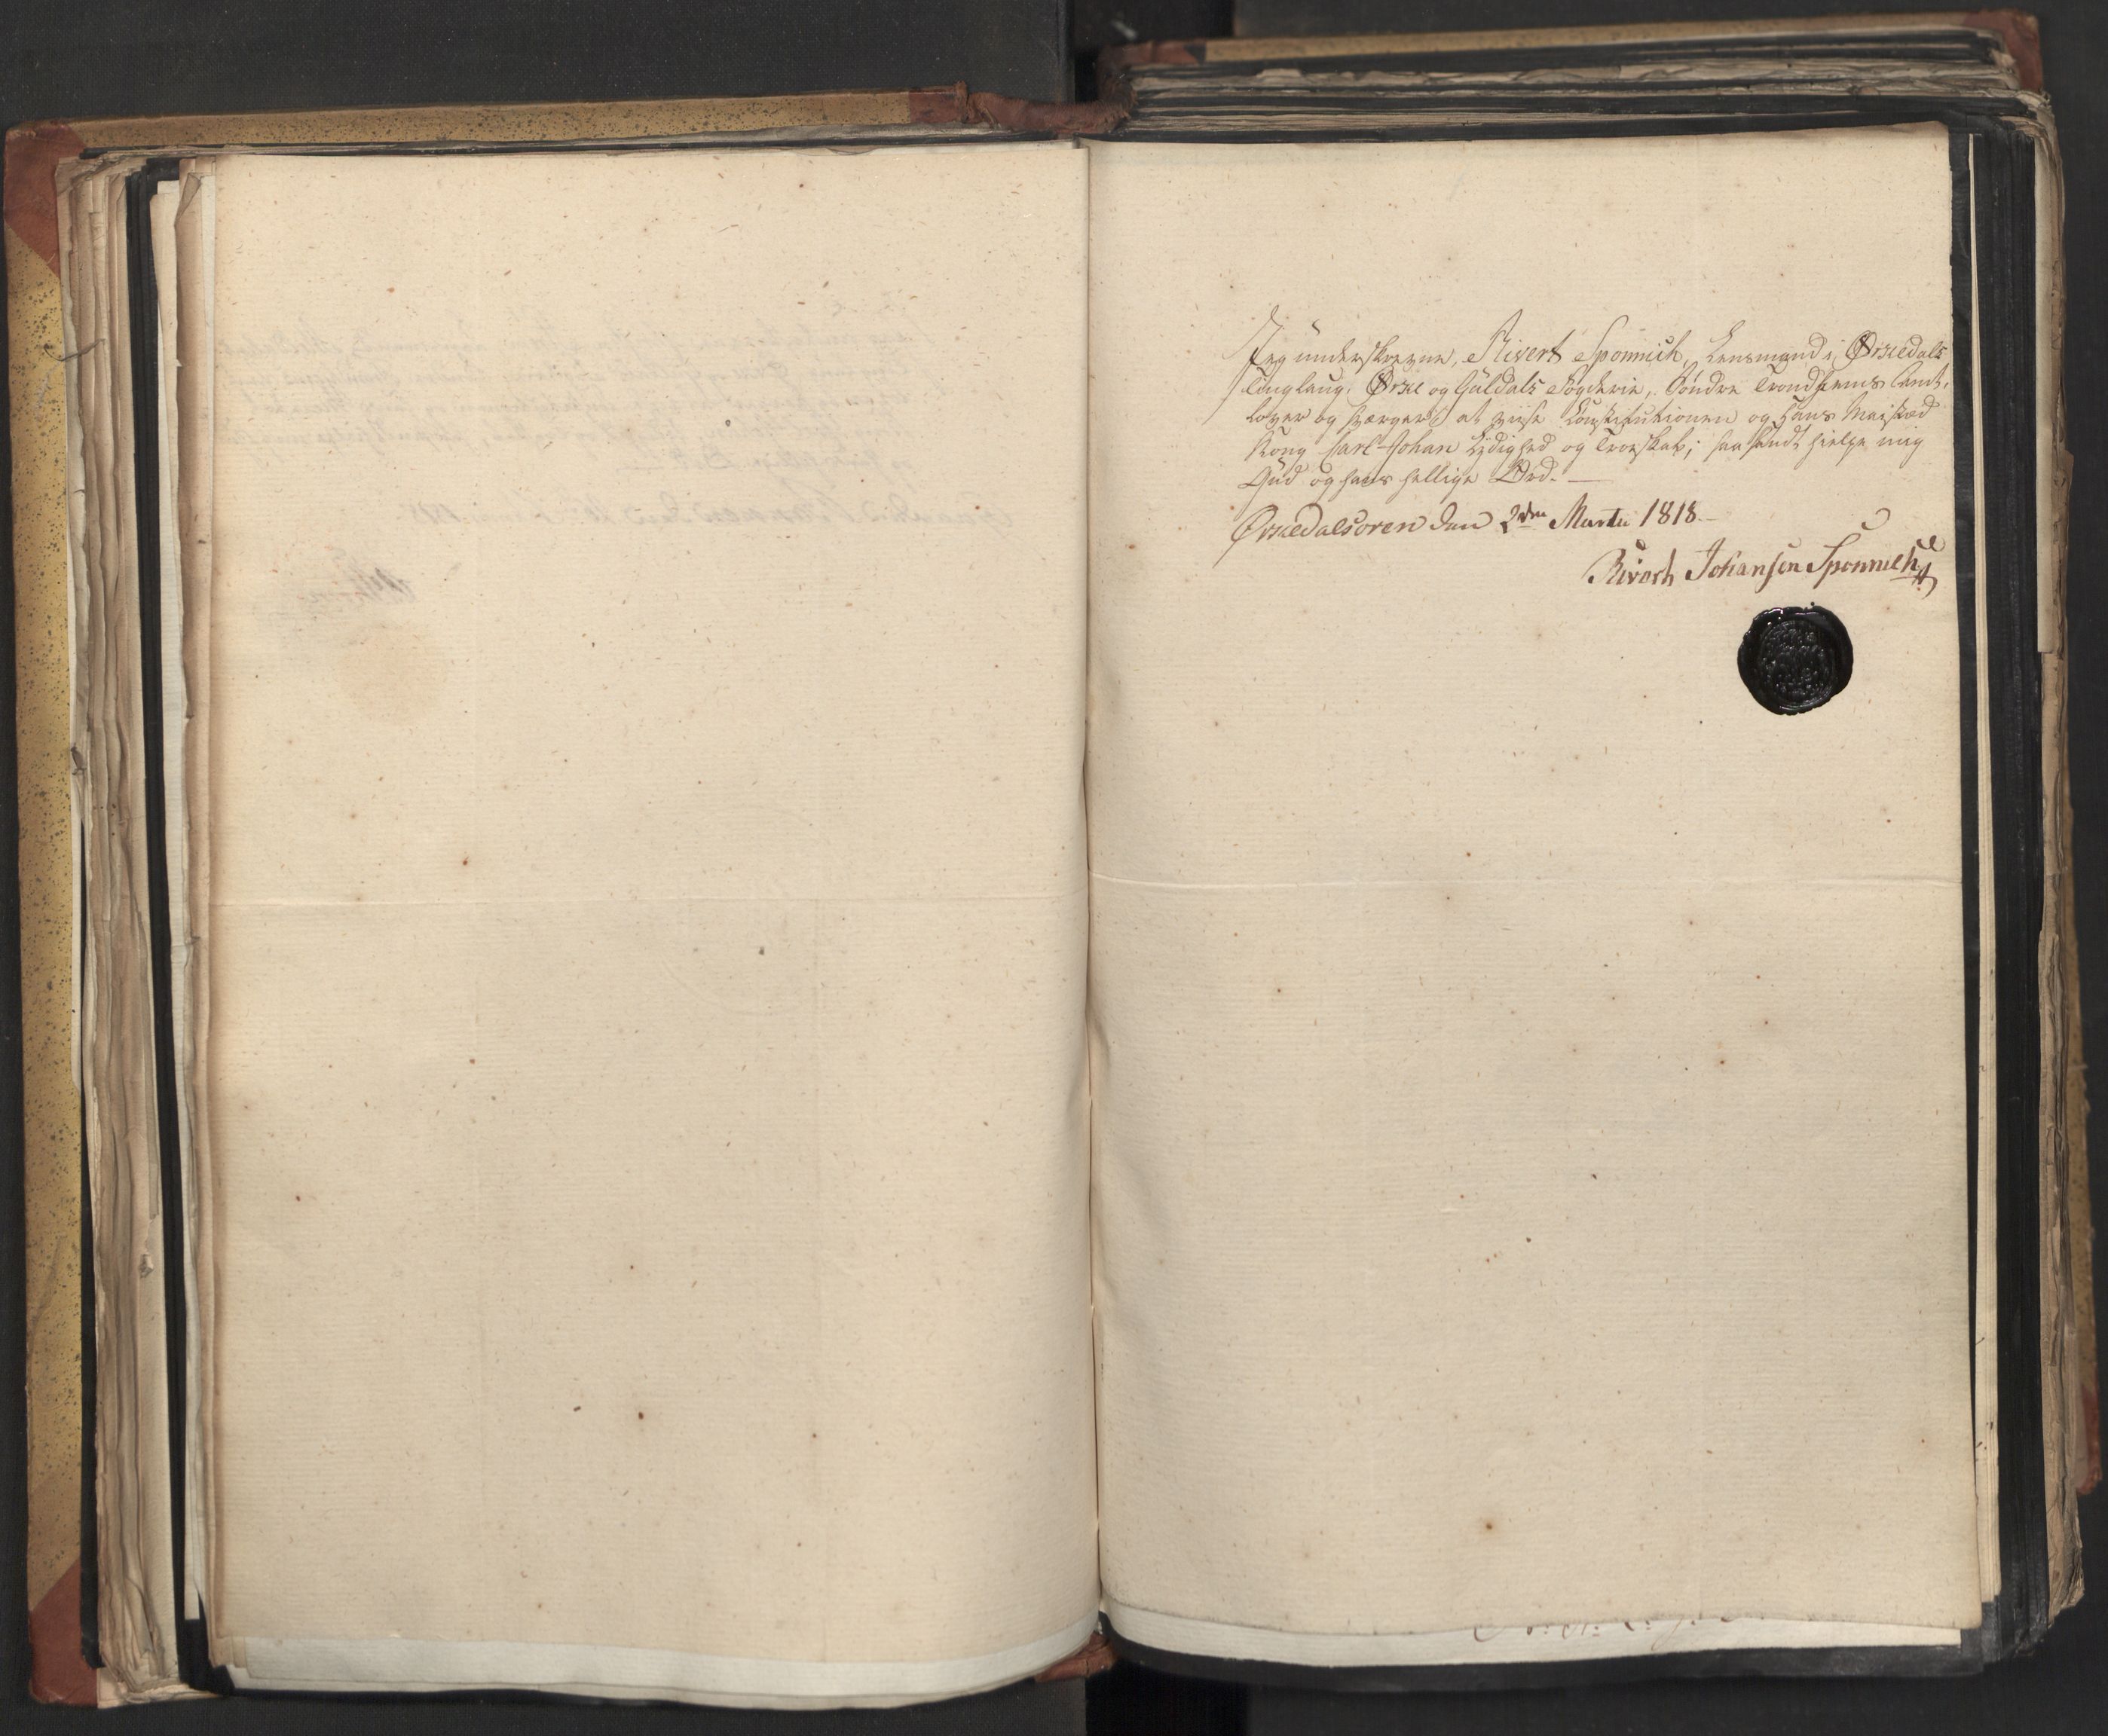 Jeg underskrevne, Sivert Sponnich, Lensmand i Ørkedals
Tinglaug, Ørke og Guldals Fogderie, Søndre Trondhiems Amt,
lover og sværger at viise Constitutionen og Hans Majestæd
Kong Carl Johan Lydighed og Troeskab; saa sandt hielpe mig
Gud og hans hellige Ord. —
Ørkedalsøren den 2den Martii 1818. —
Sivert Johansen Sponnich